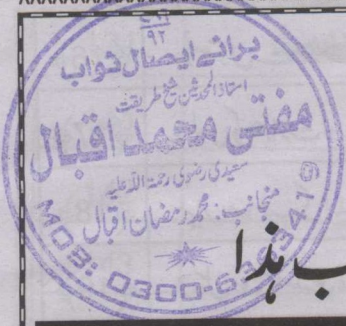 ۷۸۶
۹۲
برائے ایصال ثواب
استاذ المحدثین شیخ طریقت
مفتی محمد اقبال
سعیدی رضوی رحمۃ اللہ علیہ
منجانب: محمد رمضان اقبال
MOB: 0300-6
3419
ب ہذا